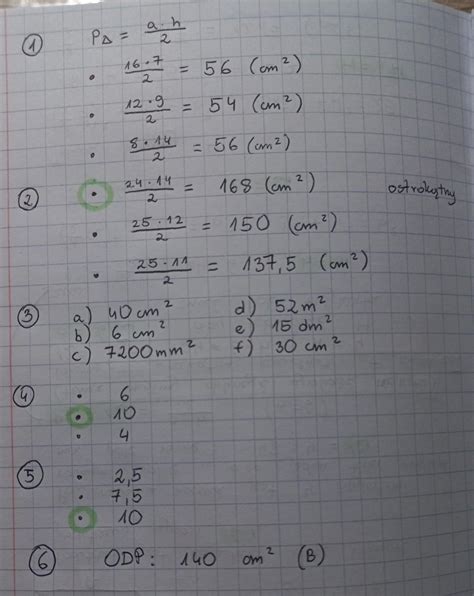 ① P△ = a·h/2
• 16·7/2 = 56 (cm²)
• 12·9/2 = 54 (cm²)
• 8·14/2 = 56 (cm²)
② • 24·14/2 = 168 (cm²) ostrokątny
• 25·12/2 = 150 (cm²)
• 25·11/2 = 137,5 (cm²)
③ a) 40 cm² d) 52 m²
b) 6 cm² e) 15 dm²
c) 7200 mm² f) 30 cm²
④ • 6
• 10
• 4
⑤ • 2,5
• 7,5
• 10
⑥ ODP: 140 cm² (B)